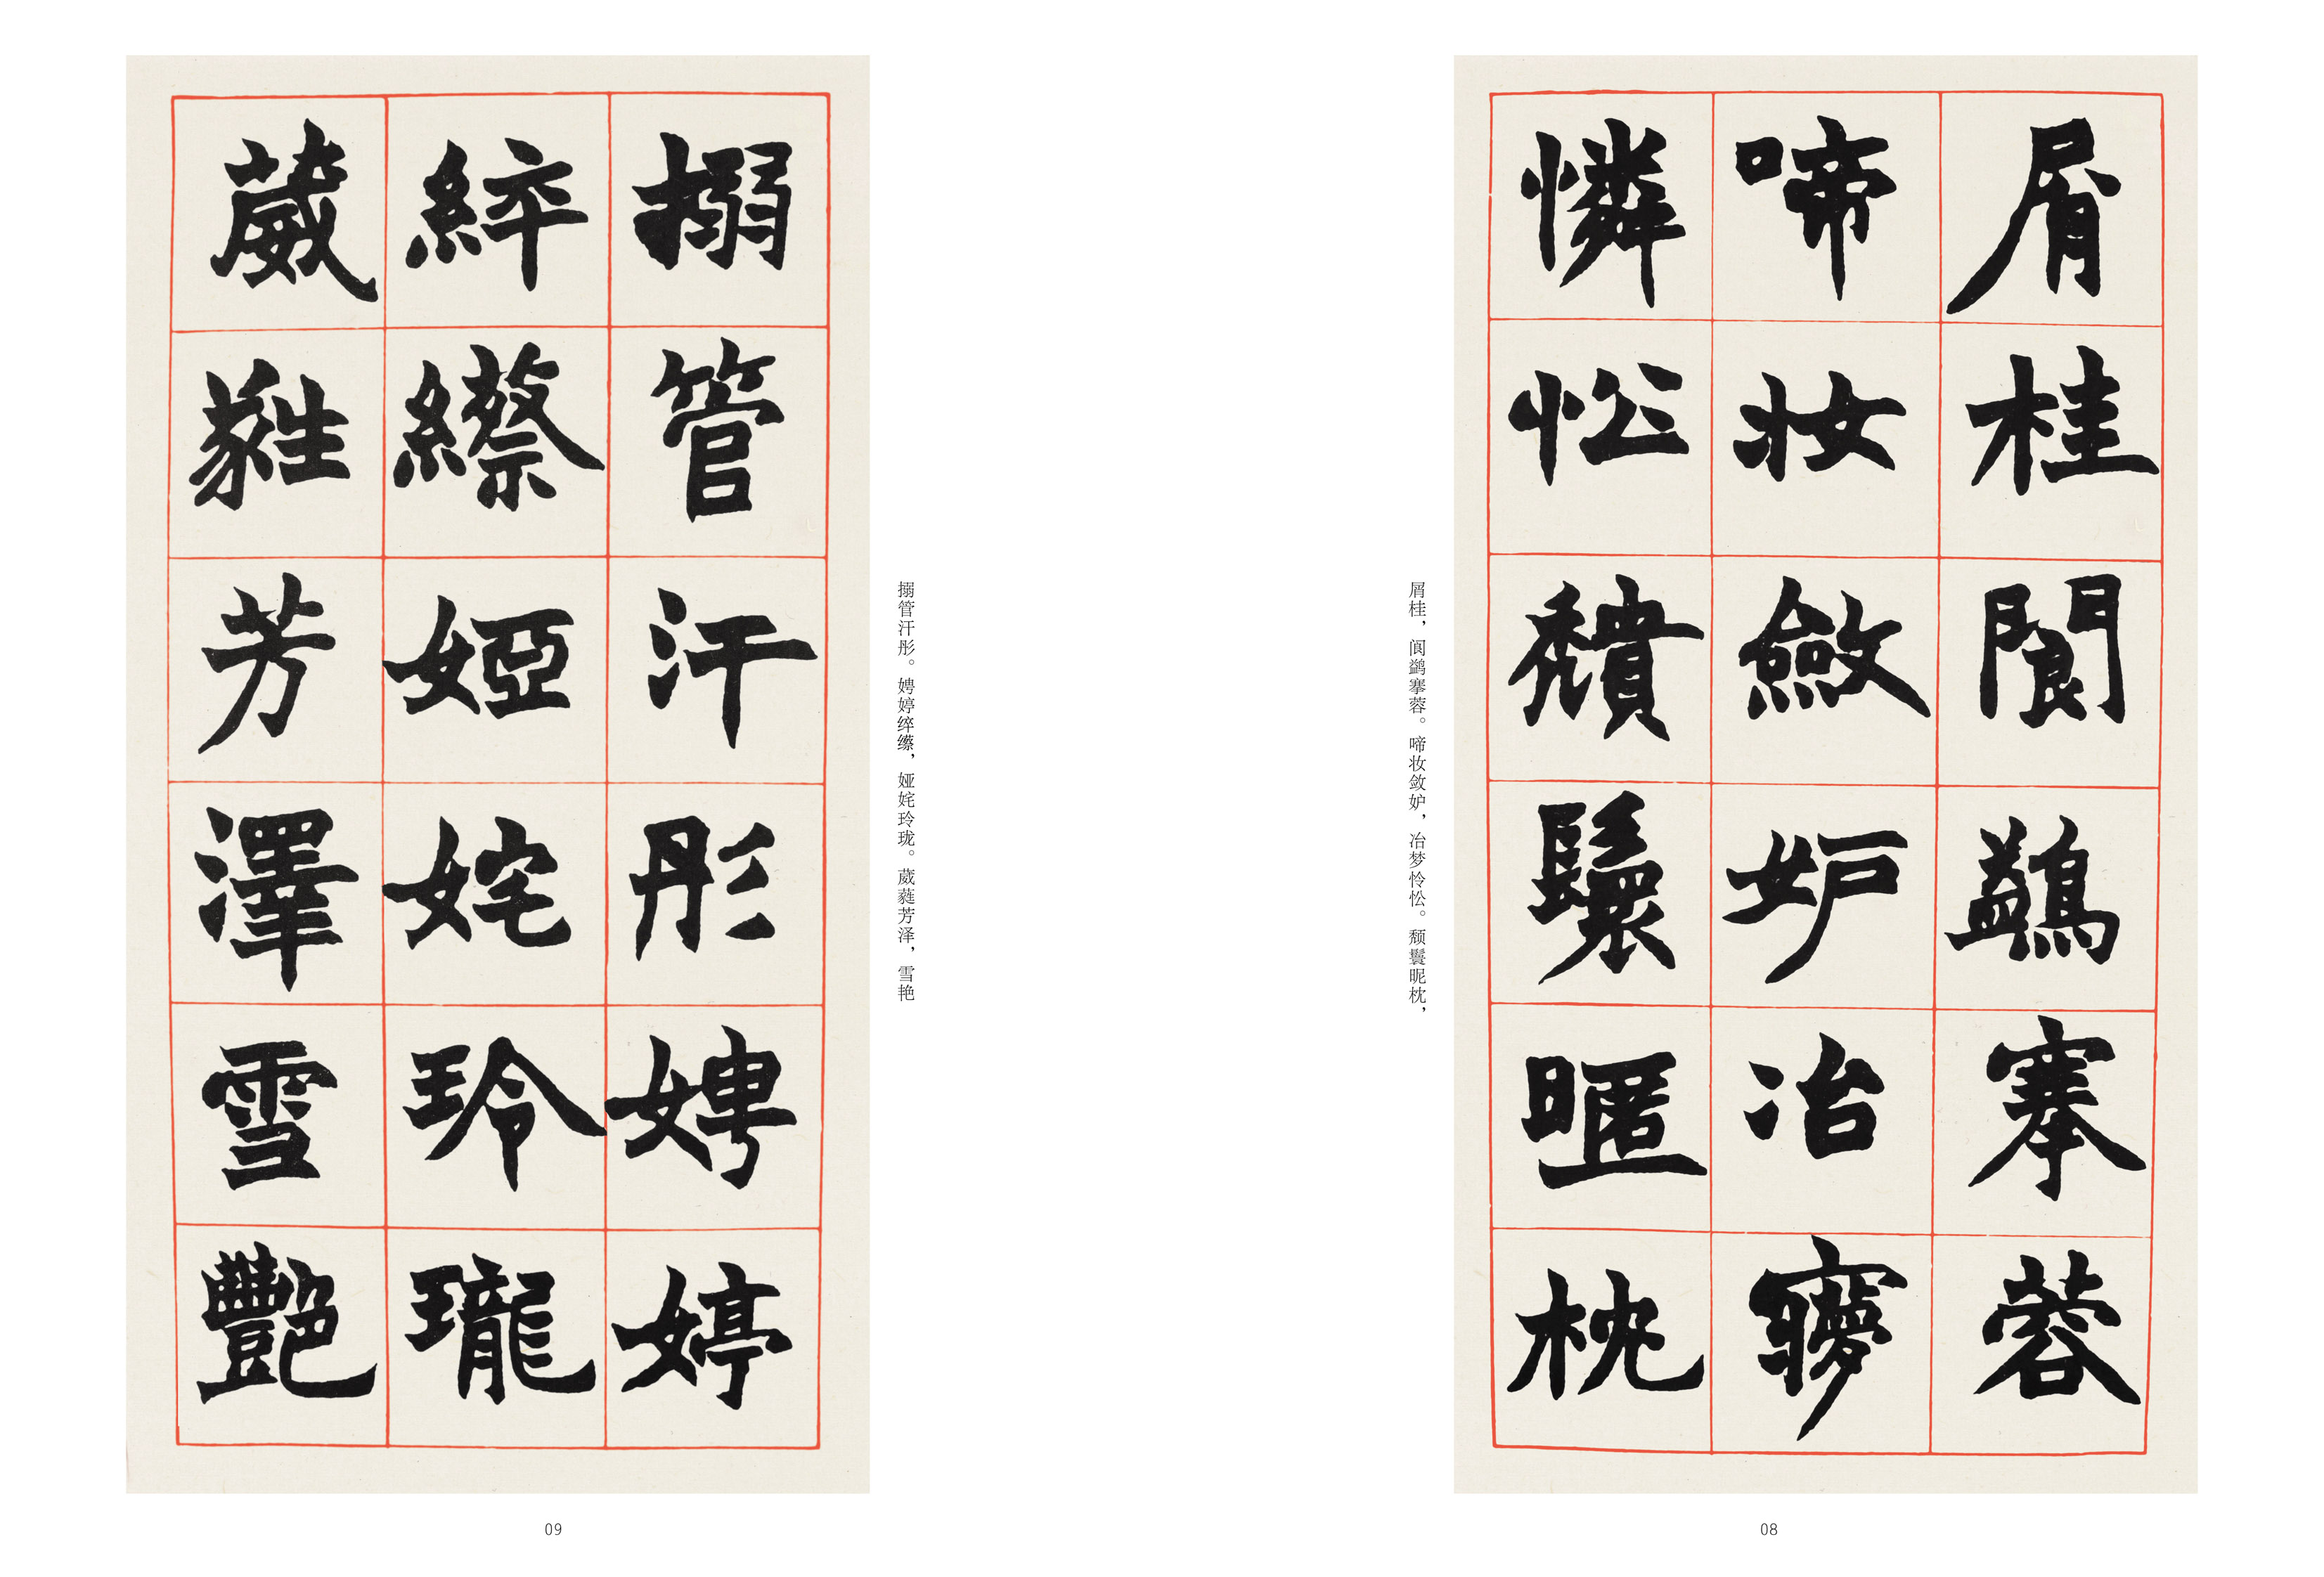 屑桂閬鷁搴蓉
啼妝斂妒冶夢
憐忪穨鬟暱枕
屑桂，阆鹢搴蓉。啼妆敛妒，冶梦怜忪。颓鬟昵枕，
08
搦管汗彤娉婷
綷縩婭姹玲瓏
葳蕤芳澤雪艷
搦管汗彤。娉婷綷縩，娅姹玲珑。葳蕤芳泽，雪艳
09